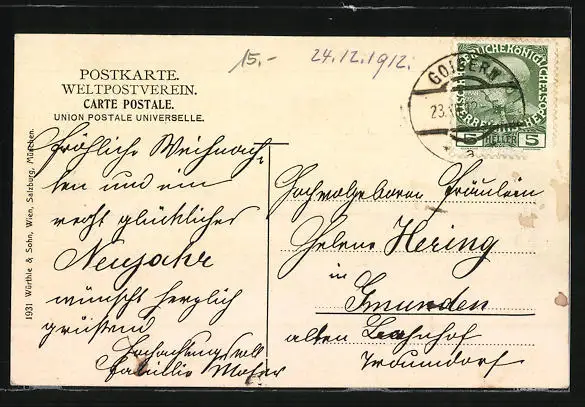 15.-
24.12.1912.
POSTKARTE.
WELTPOSTVEREIN.
CARTE POSTALE.
UNION POSTALE UNIVERSELLE.
GOISERN
23.
a
5 HELLER 5
Fröhliche Weihnach-
ten und ein
recht glückliches
Neujahr
wünscht herzlich
grüßend
Hochachtungsvoll
Familie Moser
Hochwohlgeboren Fräulein
Helene Hering
in
Gmunden
alten Bahnhof
Traundorf
1931 Würthle & Sohn, Wien, Salzburg, München.